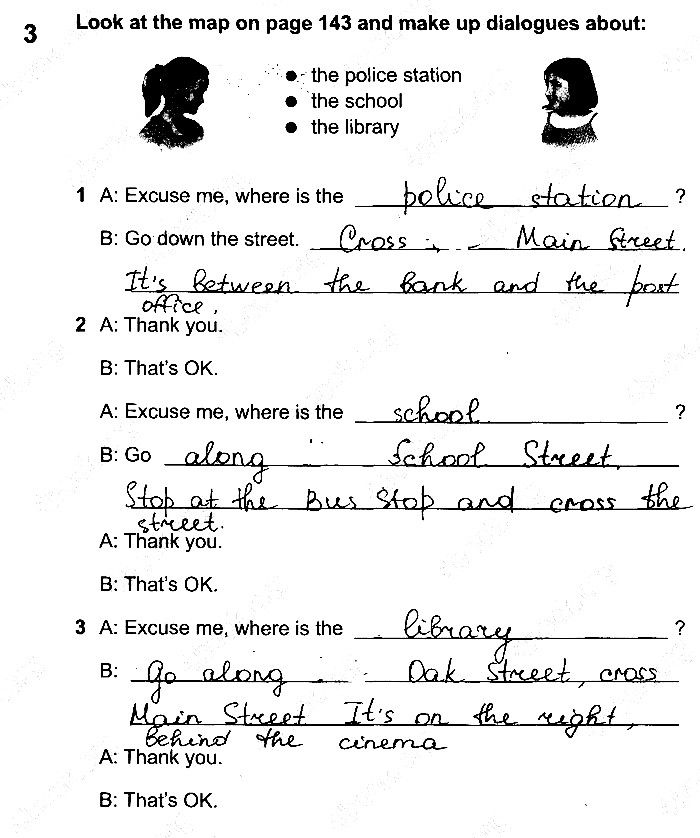 3 Look at the map on page 143 and make up dialogues about:
• the police station
• the school
• the library
1 A: Excuse me, where is the police station ?
B: Go down the street. Cross Main Street.
It's between the bank and the post
office.
2 A: Thank you.
B: That's OK.
A: Excuse me, where is the school ?
B: Go along School Street.
Stop at the Bus Stop and cross the
street.
A: Thank you.
B: That's OK.
3 A: Excuse me, where is the library ?
B: Go along Oak Street, cross
Main Street It's on the right,
behind the cinema
A: Thank you.
B: That's OK.